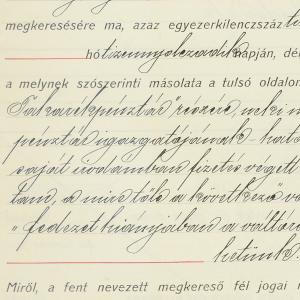 megkeresésére ma, azaz egyezerkilenczszáz
hó tizennyolcadik napján, dé
a melynek szószerinti másolata a tulsó oldalon
Takarékpénztár" részére, neki
pénztár igazgatójának
saját irodámban fizetés végett
tam, a mire től a következő
"fedezet hiányjában a váltó
hetünk.
Miről, a fent nevezett megkereső fél jogai